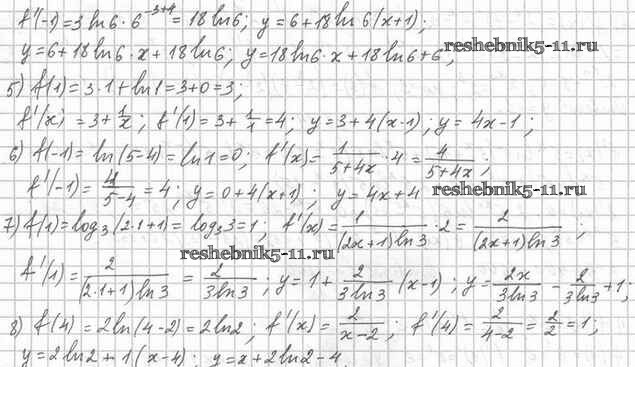 f'(-1)=3 ln6·6^{-3+4}=18 ln6; y=6+18 ln 6(x+1);
y=6+18 ln6·x+18 ln6; y=18 ln6·x+18 ln6+6;
reshebnik5-11.ru
5) f(1)=3·1+ln1=3+0=3;
f'(x)=3+1/x; f'(1)=3+1/1=4; y=3+4(x-1); y=4x-1;
6) f(-1)=ln(5-4)=ln1=0; f'(x)=1/(5+4x)·4=4/(5+4x);
f'(-1)=4/(5-4)=4; y=0+4(x+1); y=4x+4
reshebnik5-11.ru
7) f(1)=log₃(2·1+1)=log₃3=1; f'(x)=1/((2x+1)ln3)·2=2/((2x+1)ln3);
reshebnik5-11.ru
f'(1)=2/((2·1+1)ln3)=2/(3ln3); y=1+2/(3ln3)(x-1); y=2x/(3ln3)-2/(3ln3)+1;
8) f(4)=2ln(4-2)=2ln2; f'(x)=2/(x-2); f'(4)=2/(4-2)=2/2=1;
y=2ln2+1(x-4); y=x+2ln2-4